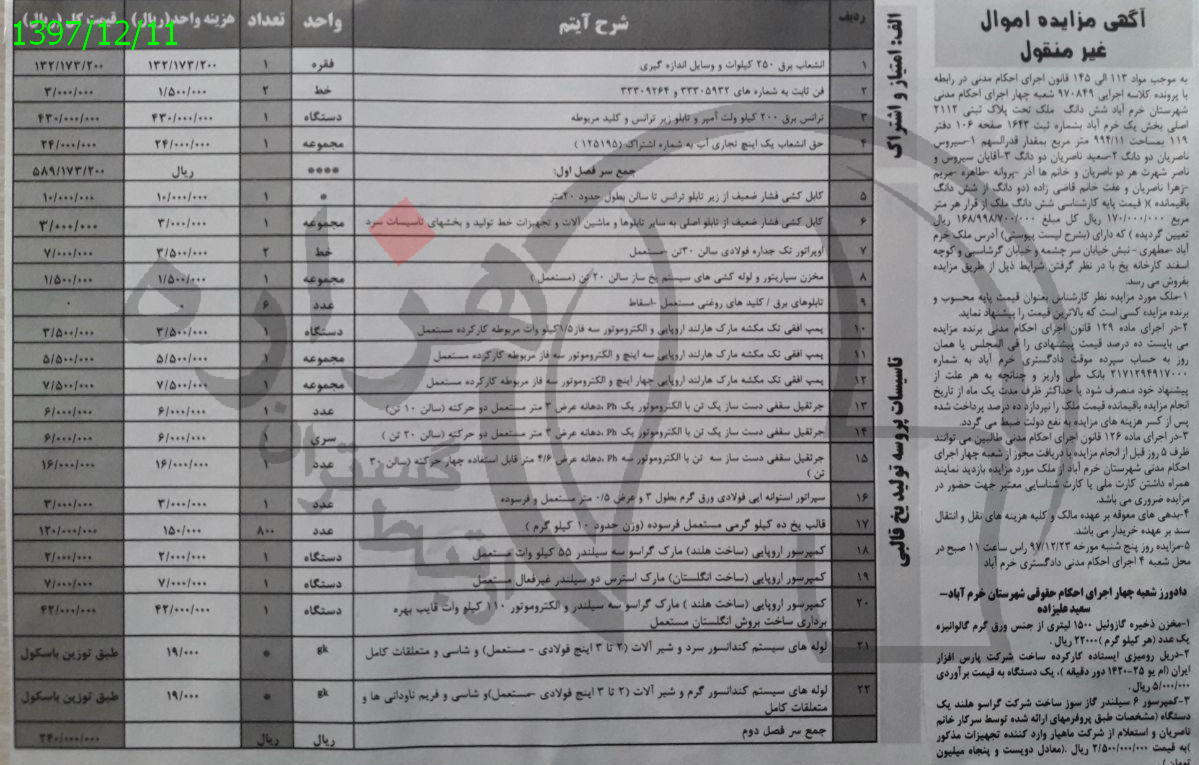 1397/12/11
آگهی مزایده اموال
غیر منقول
به موجب مواد ۱۱۳ الی ۱۴۵ قانون اجرای احکام مدنی در رابطه
با پرونده کلاسه اجرایی ۹۷۰۸۴۹ شعبه چهار اجرای احکام مدنی
شهرستان خرم آباد شش دانگ ملک تحت پلاک ثبتی ۲۱۱۲
اصلی بخش یک خرم آباد بشماره ثبت ۱۶۴۳ صفحه ۱۰۶ دفتر
۱۱۹ بمساحت ۹۹۴/۱۱ متر مربع بمقدار قدرالسهم ۱-سیروس
ناصریان دو دانگ ۲-سعید ناصریان دو دانگ ۳-آقایان سیروس و
ناصر شهرت هر دو ناصریان و خانم ها آذر -پروانه -طاهره -مریم
-زهرا ناصریان و عفت خانم قاضی زاده (دو دانگ از شش دانگ
باقیمانده )( قیمت پایه کارشناسی شش دانگ ملک از قرار هر متر
مربع ریال کل مبلغ ۱۶۸/۹۹۸/۷۰۰/۰۰۰ ریال
تعیین گردیده ) که دارای (بشرح لیست پیوستی) آدرس ملک خرم
آباد -مطهری - نبش خیابان سر چشمه و خیابان گرشاسبی و کوچه
اسفند کارخانه یخ با در نظر گرفتن شرایط ذیل از طریق مزایده
بفروش می رسد.
۱-ملک مورد مزایده نظر کارشناس بعنوان قیمت پایه محسوب و
برنده مزایده کسی است که بالاترین قیمت را پیشنهاد نماید.
۲-در اجرای ماده ۱۲۹ قانون اجرای احکام مدنی برنده مزایده
می بایست ده درصد قیمت پیشنهادی را فی المجلس یا همان
روز به حساب سپرده موقت دادگستری خرم آباد به شماره
۲۱۷۱۲۹۴۹۱۷۰۰۰ بانک ملی واریز و چنانچه به هر علت از
پیشنهاد خود منصرف شود یا حداکثر ظرف مدت یک ماه از تاریخ
انجام مزایده باقیمانده قیمت ملک را نپردازد ده درصد پرداخت شده
پس از کسر هزینه های مزایده به نفع دولت ضبط می گردد.
۳-در اجرای ماده ۱۲۶ قانون اجرای احکام مدنی طالبین می توانند
ظرف ۵ روز قبل از انجام مزایده با دریافت مجوز از شعبه چهار اجرای
احکام مدنی شهرستان خرم آباد از ملک مورد مزایده بازدید نمایند
همراه داشتن کارت ملی یا کارت شناسایی معتبر جهت حضور در
مزایده ضروری می باشد.
۴-بدهی های معوقه بر عهده مالک و کلیه هزینه های نقل و انتقال
سند بر عهده خریدار می باشد
۵-مزایده روز پنج شنبه مورخه ۹۷/۱۲/۲۳ راس ساعت ۱۱ صبح در
محل شعبه ۴ اجرای احکام مدنی دادگستری خرم آباد
دادورز شعبه چهار اجرای احکام حقوقی شهرستان خرم آباد-
سعید علیزاده
۱-مخزن ذخیره گازوئیل ۱۵۰۰ لیتری از جنس ورق گرم گالوانیزه
یک عدد (هر کیلو گرم )۲۲۰۰۰ ریال .
۲-دریل رومیزی ایستاده کارکرده ساخت شرکت پارس افزار
ایران (ام یو ۲۵-۱۴۲۰ دور دقیقه )، یک دستگاه به قیمت برآوردی
۵/۰۰۰/۰۰۰ ریال .
۳-کمپرسور ۶ سیلندر گاز سوز ساخت شرکت گراسو هلند یک
دستگاه (مشخصات طبق پروفرمهای ارائه شده توسط سرکار خانم
ناصریان و استعلام از شرکت ماهیار وارد کننده تجهیزات مذکور
)به قیمت ۲/۵۰۰/۰۰۰/۰۰۰ ریال .(معادل دویست و پنجاه میلیون
تومان )
الف: امتیاز و اشتراک
تاسیسات پروسه تولید یخ قالبی
ردیف شرح آیتم واحد تعداد هزینه واحد(ریال) قیمت کل (ریال)
۱ انشعاب برق ۲۵۰ کیلوات و وسایل اندازه گیری فقره ۱ ۱۳۲/۱۷۳/۲۰۰ ۱۳۲/۱۷۳/۲۰۰
۲ فن ثابت به شماره های ۳۳۳۰۵۹۳۲ و ۳۳۳۰۹۲۶۴ خط ۲ ۱/۵۰۰/۰۰۰ ۳/۰۰۰/۰۰۰
۳ ترانس برق ۲۰۰ کیلو ولت آمپر و تابلو زیر ترانس و کلید مربوطه دستگاه ۱ ۴۳۰/۰۰۰/۰۰۰ ۴۳۰/۰۰۰/۰۰۰
۴ حق انشعاب یک اینچ تجاری آب به شماره اشتراک (۱۲۵۱۹۵ ) مجموعه ۱ ۲۴/۰۰۰/۰۰۰ ۲۴/۰۰۰/۰۰۰
جمع سر فصل اول: **** ریال ۵۸۹/۱۷۳/۲۰۰
۵ کابل کشی فشار ضعیف از زیر تابلو ترانس تا سالن بطول حدود ۲۰متر * ۱ ۱۰/۰۰۰/۰۰۰ ۱۰/۰۰۰/۰۰۰
۶ کابل کشی فشار ضعیف از تابلو اصلی به سایر تابلوها و ماشین آلات و تجهیزات خط تولید و بخشهای تاسیسات سرد مجموعه ۱ ۳/۰۰۰/۰۰۰ ۳/۰۰۰/۰۰۰
۷ آوپراتور تک جداره فولادی سالن ۳۰تن مستعمل خط ۲ ۳/۵۰۰/۰۰۰ ۷/۰۰۰/۰۰۰
۸ مخزن سپاریتور و لوله کشی های سیستم یخ ساز سالن ۲۰ تن (مستعمل ) مجموعه ۱ ۱/۵۰۰/۰۰۰ ۱/۵۰۰/۰۰۰
۹ تابلوهای برق / کلید های روغنی مستعمل -اسقاط عدد ۶ ۰ ۰
۱۰ پمپ افقی تک مکشه مارک هارلند اروپایی و الکتروموتور سه فاز۱/۵کیلو وات مربوطه کارکرده مستعمل دستگاه ۱ ۳/۵۰۰/۰۰۰ ۳/۵۰۰/۰۰۰
۱۱ پمپ افقی تک مکشه مارک هارلند اروپایی سه اینچ و الکتروموتور سه فاز مربوطه کارکرده مستعمل مجموعه ۱ ۵/۵۰۰/۰۰۰ ۵/۵۰۰/۰۰۰
۱۲ پمپ افقی تک مکشه مارک هارلند اروپایی چهار اینچ و الکتروموتور سه فاز مربوطه کارکرده مستعمل مجموعه ۱ ۷/۵۰۰/۰۰۰ ۷/۵۰۰/۰۰۰
۱۳ جرثقیل سقفی دست ساز یک تن با الکتروموتور یک Ph ،دهانه عرض ۳ متر مستعمل دو حرکته (سالن ۱۰ تن) عدد ۱ ۶/۰۰۰/۰۰۰ ۶/۰۰۰/۰۰۰
۱۴ جرثقیل سقفی دست ساز یک تن با الکتروموتور یک Ph ،دهانه عرض ۳ متر مستعمل دو حرکته (سالن ۲۰ تن ) سری ۱ ۶/۰۰۰/۰۰۰ ۶/۰۰۰/۰۰۰
۱۵ جرثقیل سقفی دست ساز سه تن با الکتروموتور سه Ph ،دهانه عرض ۴/۶ متر قابل استفاده چهار حرکته (سالن ۳۰
تن ) عدد ۱ ۱۶/۰۰۰/۰۰۰ ۱۶/۰۰۰/۰۰۰
۱۶ سپراتور استوانه ایی فولادی ورق گرم بطول ۳ و عرض ۰/۵ متر مستعمل و فرسوده عدد ۱ ۳/۰۰۰/۰۰۰ ۳/۰۰۰/۰۰۰
۱۷ قالب یخ ده کیلو گرمی مستعمل فرسوده (وزن حدود ۱۰ کیلو گرم ) عدد ۸۰۰ ۱۵۰/۰۰۰ ۱۲۰/۰۰۰/۰۰۰
۱۸ کمپرسور اروپایی (ساخت هلند) مارک گراسو سه سیلندر ۵۵ کیلو وات مستعمل دستگاه ۱ ۲/۰۰۰/۰۰۰ ۲/۰۰۰/۰۰۰
۱۹ کمپرسور اروپایی (ساخت انگلستان) مارک استرس دو سیلندر غیرفعال مستعمل دستگاه ۱ ۷/۰۰۰/۰۰۰ ۷/۰۰۰/۰۰۰
۲۰ کمپرسور اروپایی (ساخت هلند ) مارک گراسو سه سیلندر و الکتروموتور ۱۱۰ کیلو وات قایب بهره
برداری ساخت بروش انگلستان مستعمل دستگاه ۱ ۴۲/۰۰۰/۰۰۰ ۴۲/۰۰۰/۰۰۰
۲۱ لوله های سیستم کندانسور سرد و شیر آلات (۲ تا ۳ اینچ فولادی - مستعمل) و شاسی و متعلقات کامل gk * ۱۹/۰۰۰ طبق توزین باسکول
۲۲ لوله های سیستم کندانسور گرم و شیر آلات (۲ تا ۳ اینچ فولادی -مستعمل)و شاسی و فریم ناودانی ها و
متعلقات کامل gk * ۱۹/۰۰۰ طبق توزین باسکول
جمع سر فصل دوم ریال ریال ۲۴۰/۰۰۰/۰۰۰
هزاره
گستران
ارتباط